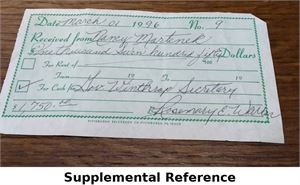 Date March 01 1996 No. 9
Received from Nancy Martinek
One Thousand Seven hundred fifty Dollars
For Rent of
From To
For Cash for Gov. Winthrop Secretery
$1,750.00 Rosemary E.
Supplemental Reference